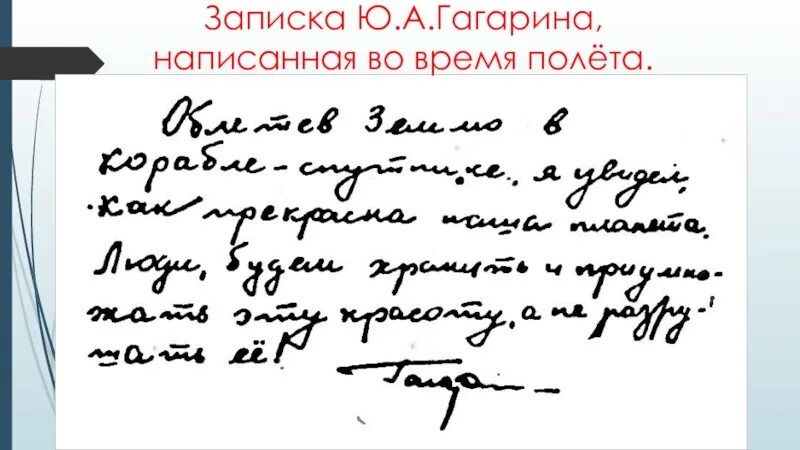 Записка Ю.А.Гагарина,
написанная во время полёта.
Облетев Землю в
корабле-спутнике, я увидел,
как прекрасна наша планета.
Люди, будем хранить и приумно-
жать эту красоту, а не разру-
шать её!
Гагарин